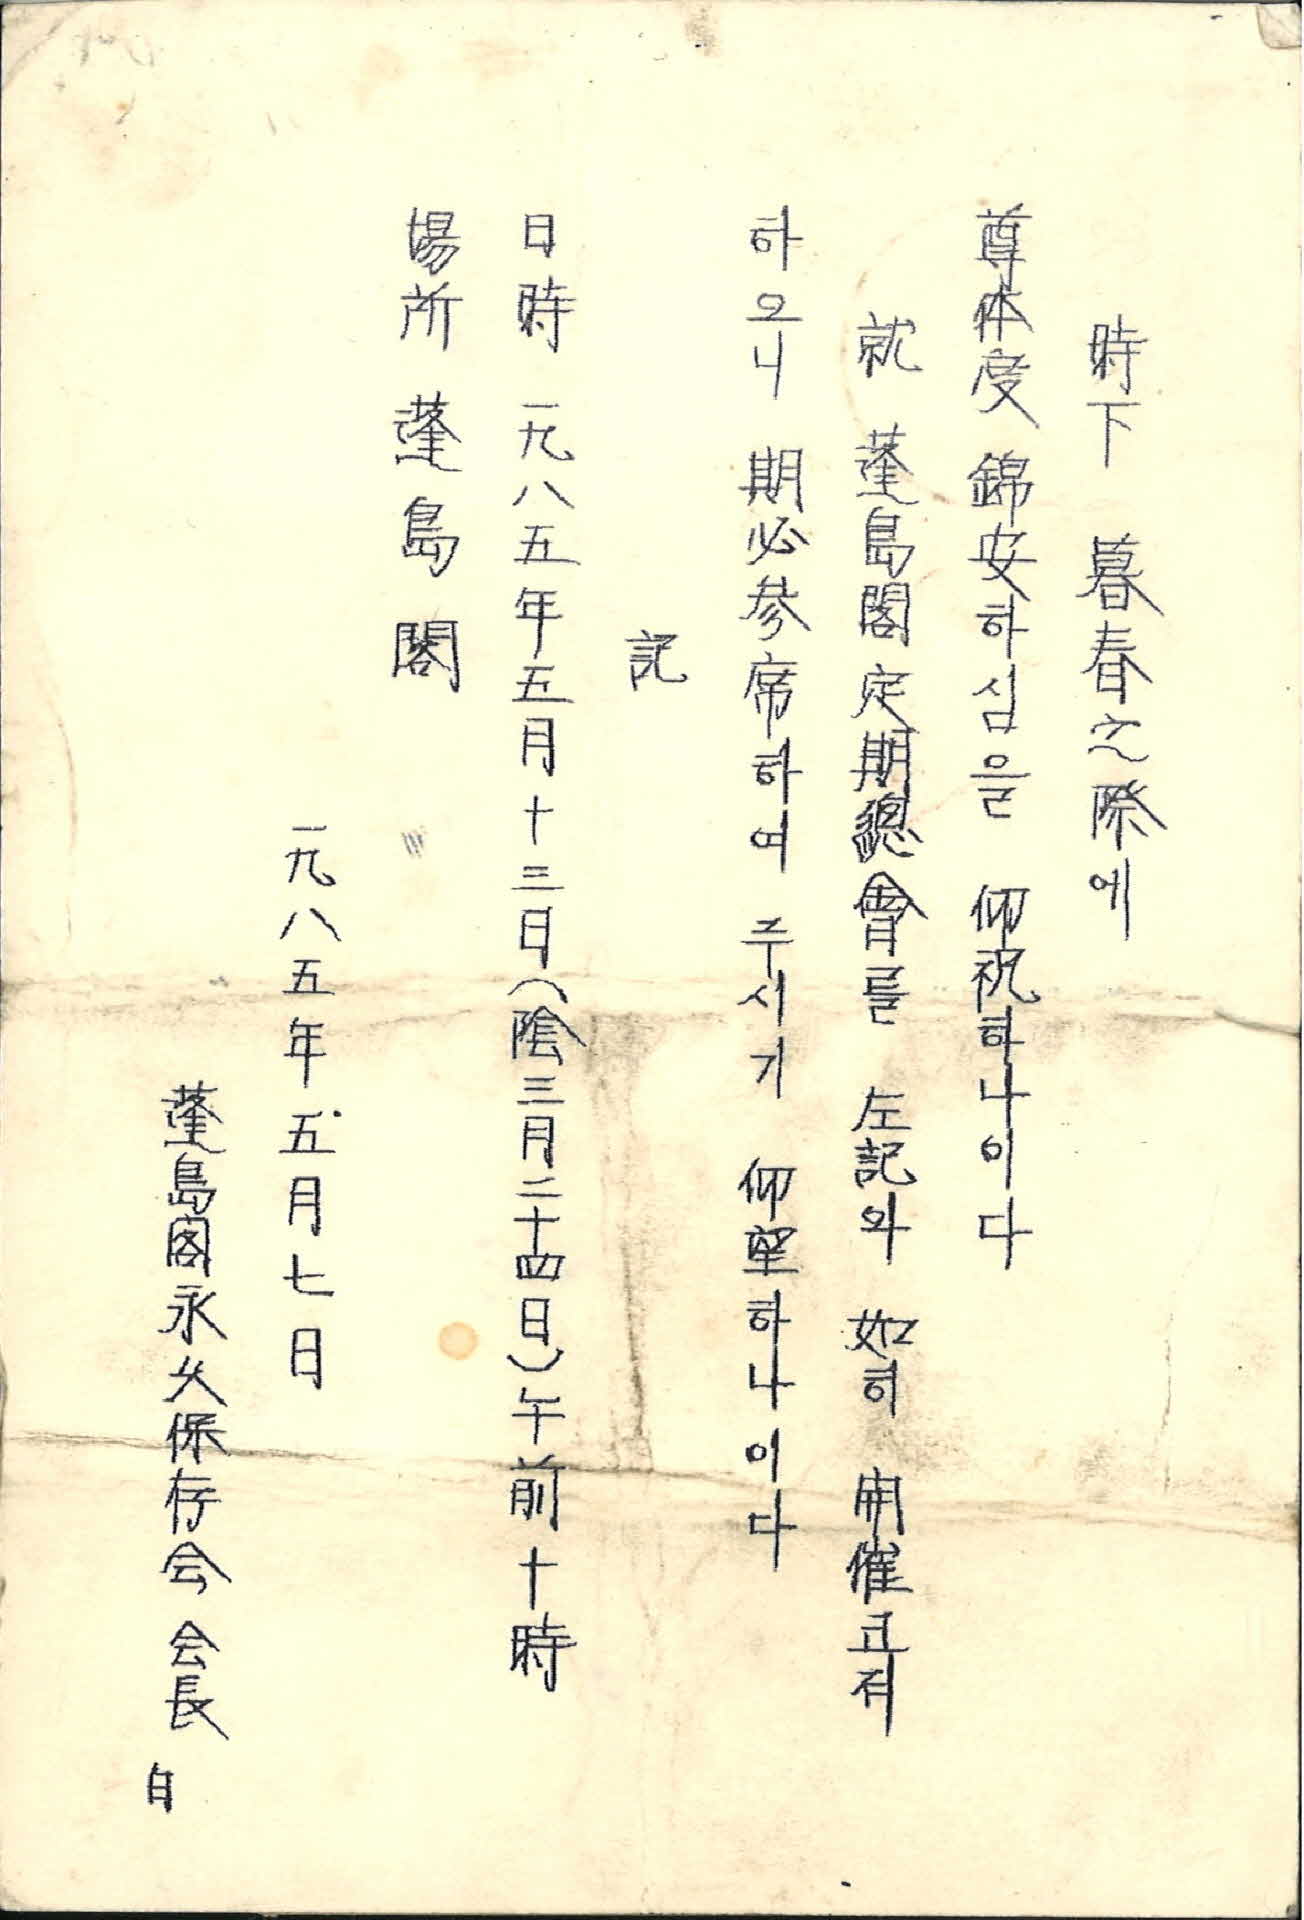 時下 暮春之際에
尊体度 錦安하심을 仰祝하나이다
就 蓬島閣定期總會를 左記와 如히 開催고저
하오니 期必參席하여 주시기 仰望하나이다
記
日時 一九八五年五月十三日(陰三月二十四日)午前十時
場所 蓬島閣
一九八五年五月七日
蓬島閣永久保存会 会長 白